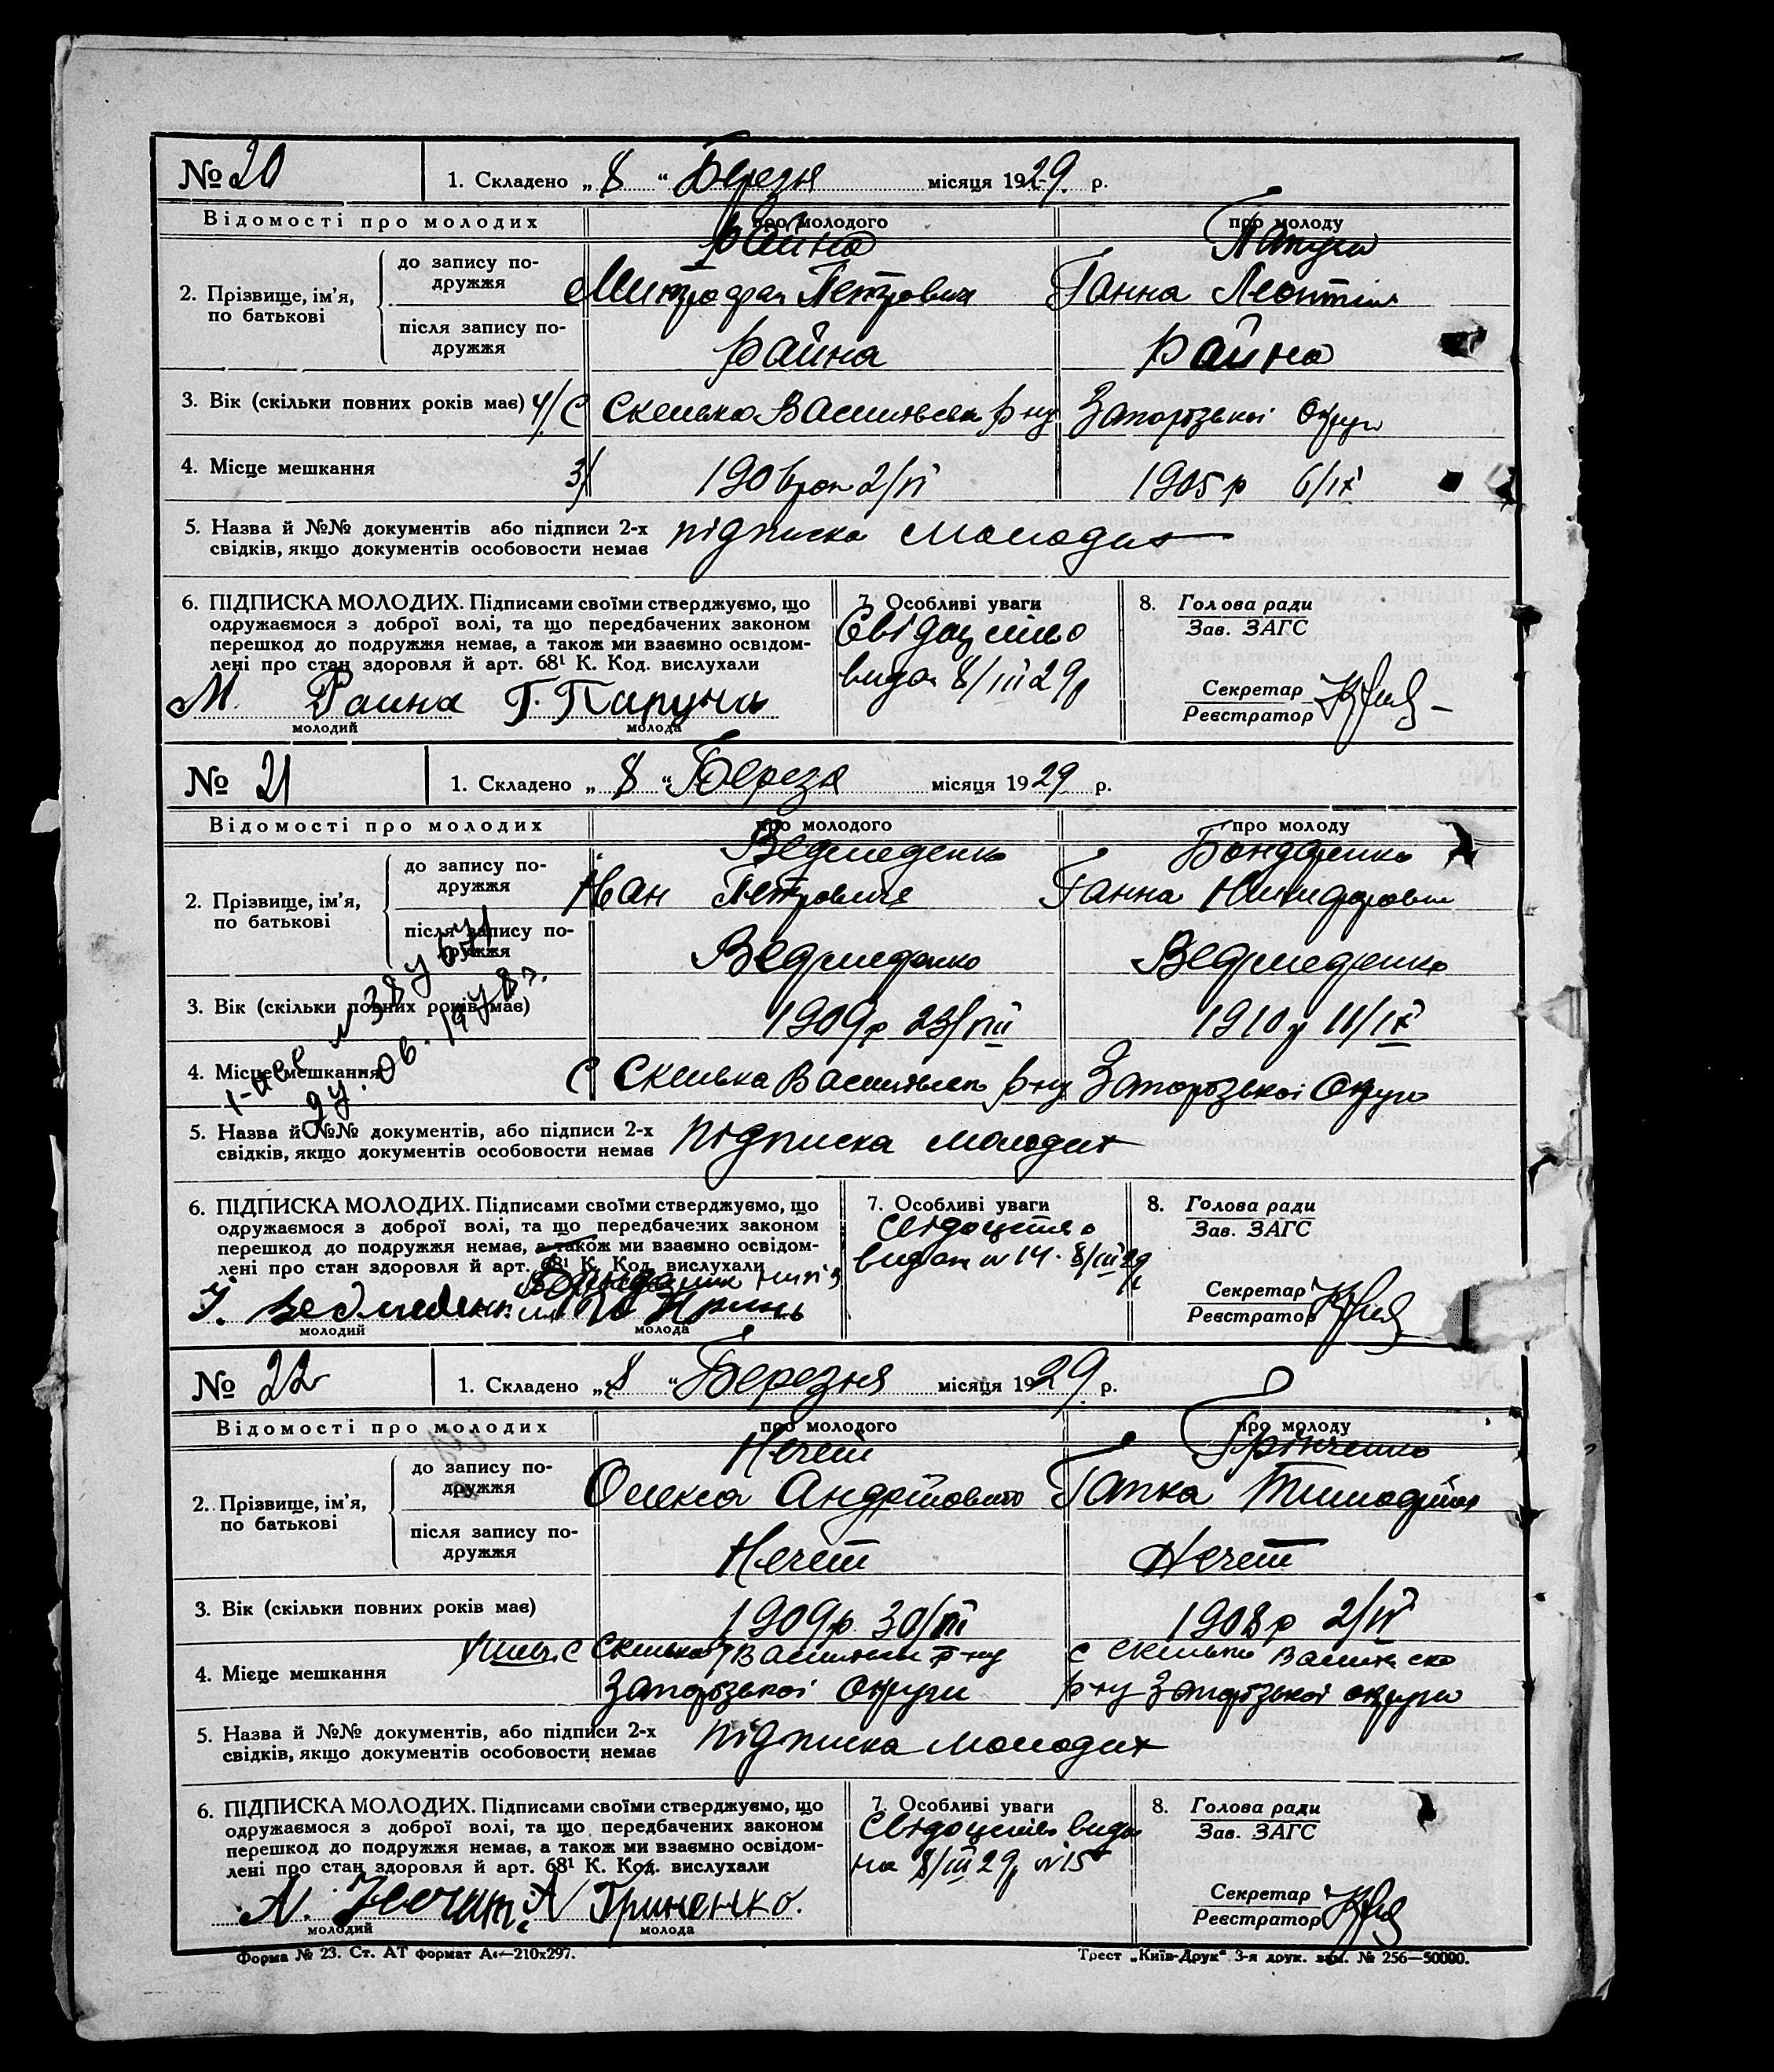 № 20 1. Складено „ 8 “ Березня місяця 1929. р.
Відомості про молодих про молодого про молоду
Райна
2. Прізвище, ім'я, по батькові
до запису по-
дружжя
Митрофан Петрович Ганна Леонтіїв
після запису по-
дружжя
Райна Райна
3. Вік (скільки повних років має) 4/ С Скелька Васильевськ р-ну Запорізької Округи
4. Місце мешкання 3/ 1906 рок 2/VI 1905 р 6/IX
5. Назва й №№ документів або підписи 2-х
свідків, якщо документів особовости немає
підписка молодих
6. ПІДПИСКА МОЛОДИХ. Підписами своїми стверджуємо, що
одружаємося з доброї волі, та що передбачених законом
перешкод до подружжя немає, а також ми взаємно освідом-
лені про стан здоровля й арт. 68¹ К. Код. вислухали
М. Раина Г. Папуча
молодий молода
7. Особливі уваги
Свідоцтво
видан 8/III 29р
8. Голова ради
Зав. ЗАГС
Секретар
Реєстратор
№ 21 1. Складено „ 8 “ Березня місяця 1929 р.
Відомості про молодих про молодого про молоду
Ведмеденко Бондаренко
2. Прізвище, ім'я, по батькові
до запису по-
дружжя
Іван Петрович Ганна Никифоровн
після запису по-
дружжя
Ведмеденко Ведмеденко
3. Вік (скільки повних років має) 1909 р 23/VIII 1910 р 11/IX
4. Місце мешкання С Скелька Васильевськ р-ну Запорізької Округи
5. Назва й №№ документів, або підписи 2-х
свідків, якщо документів особовости немає
підписка молодих
6. ПІДПИСКА МОЛОДИХ. Підписами своїми стверджуємо, що
одружаємося з доброї волі, та що передбачених законом
перешкод до подружжя немає, а також ми взаємно освідом-
лені про стан здоровля й арт. 68¹ К. Код. вислухали
І. Ведмеденко
молодий молода
7. Особливі уваги
Свідоцтво
видан № 14. 8/III 29р
8. Голова ради
Зав. ЗАГС
Секретар
Реєстратор
№ 22 1. Складено „ 8 “ Березня місяця 1929. р.
Відомості про молодих про молодого про молоду
Нечет Грінченко
2. Прізвище, ім'я, по батькові
до запису по-
дружжя
Олекса Андрійович Гапка Тимофіїв
після запису по-
дружжя
Нечет Нечет
3. Вік (скільки повних років має) 1909 р. 30/III 1908 р 2/IV
4. Місце мешкання
С Скелька Васильевськ р-ну С Скелька Васильевско
Запорізької Округи р-ну Запорізької округи
5. Назва й №№ документів, або підписи 2-х
свідків, якщо документів особовости немає
підписка молодих
6. ПІДПИСКА МОЛОДИХ. Підписами своїми стверджуємо, що
одружаємося з доброї волі, та що передбачених законом
перешкод до подружжя немає, а також ми взаємно освідом-
лені про стан здоровля й арт. 68¹ К. Код. вислухали
А. Нечит А Гриненко.
молодий молода
7. Особливі уваги
Свідоцтво вида
на 8/III 29р № 15
8. Голова ради
Зав. ЗАГС
Секретар
Реєстратор
Форма № 23. Ст. АТ формат А4—210х297. Трест „Київ-Друк“ 3-я друк. зам. № 256—50000.